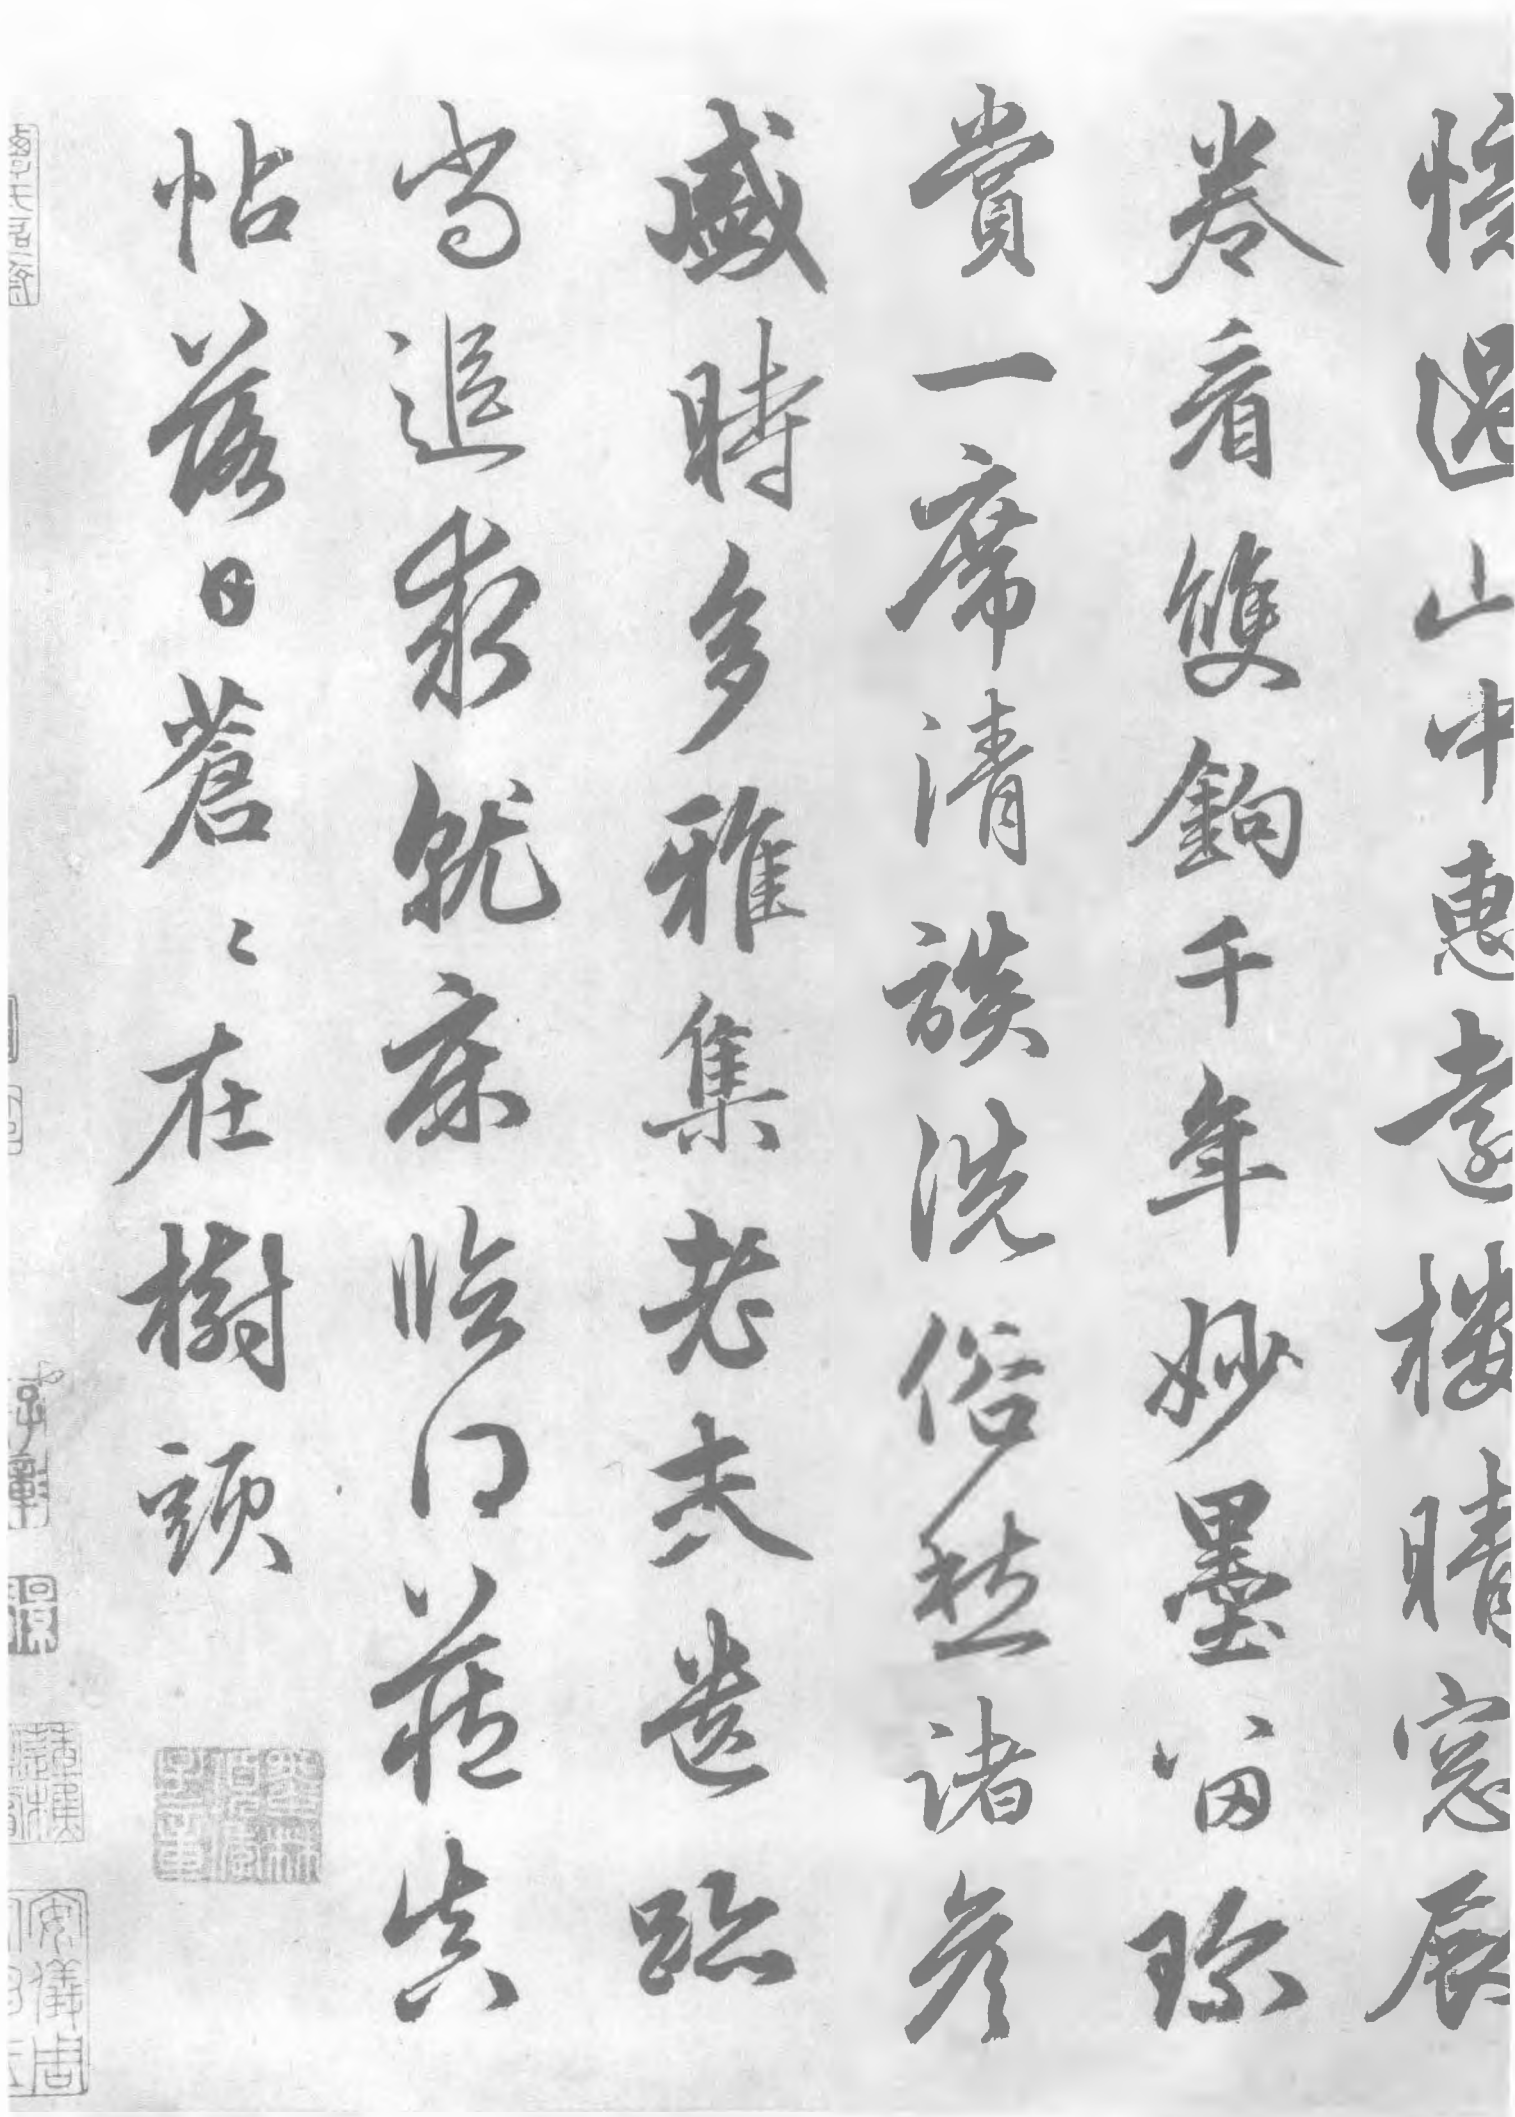 憶過山中惠遠樓晴窓展
卷看雙鉤千年妙墨留珎
賞一席清談洗俗愁諸彥
盛時多雅集老夫遺跡
尚追求就床臨門蘓真
帖落日蒼〻在樹頭